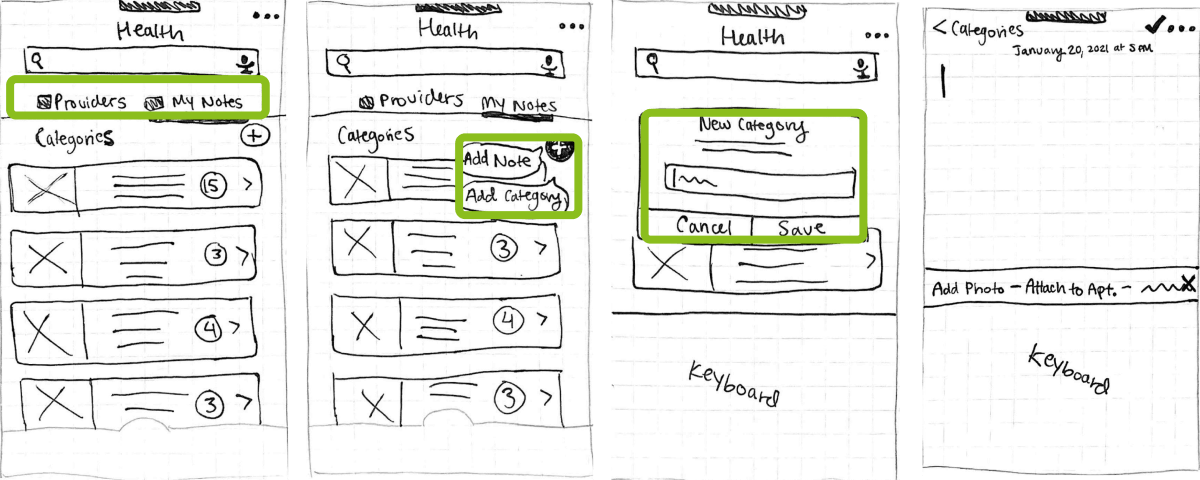 Health
Providers My Notes
Categories +
15
3
4
3
Health
Providers My Notes
Categories +
Add Note
Add Category
3
4
3
Health
New Category
Cancel Save
Keyboard
< Categories
January 20, 2021 at 5 PM
Add Photo - Attach to Apt. -
Keyboard